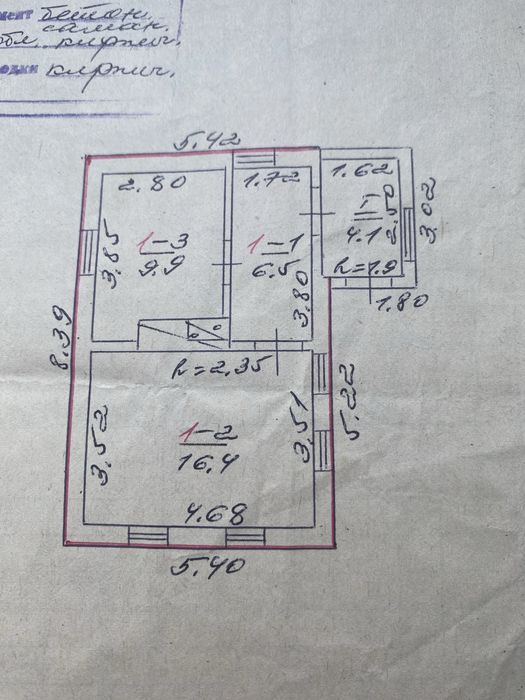 бетон.
саман.
обл. кирпич.
кирпич.
5.42
2.80
1.72
1.62
I
4.1
2.50
3.02
3.85
1-3
9.9
1-1
6.5
3.80
h=1.9
1.80
8.39
h=2.35
3.52
1-2
16.4
3.51
5.22
4.68
5.40